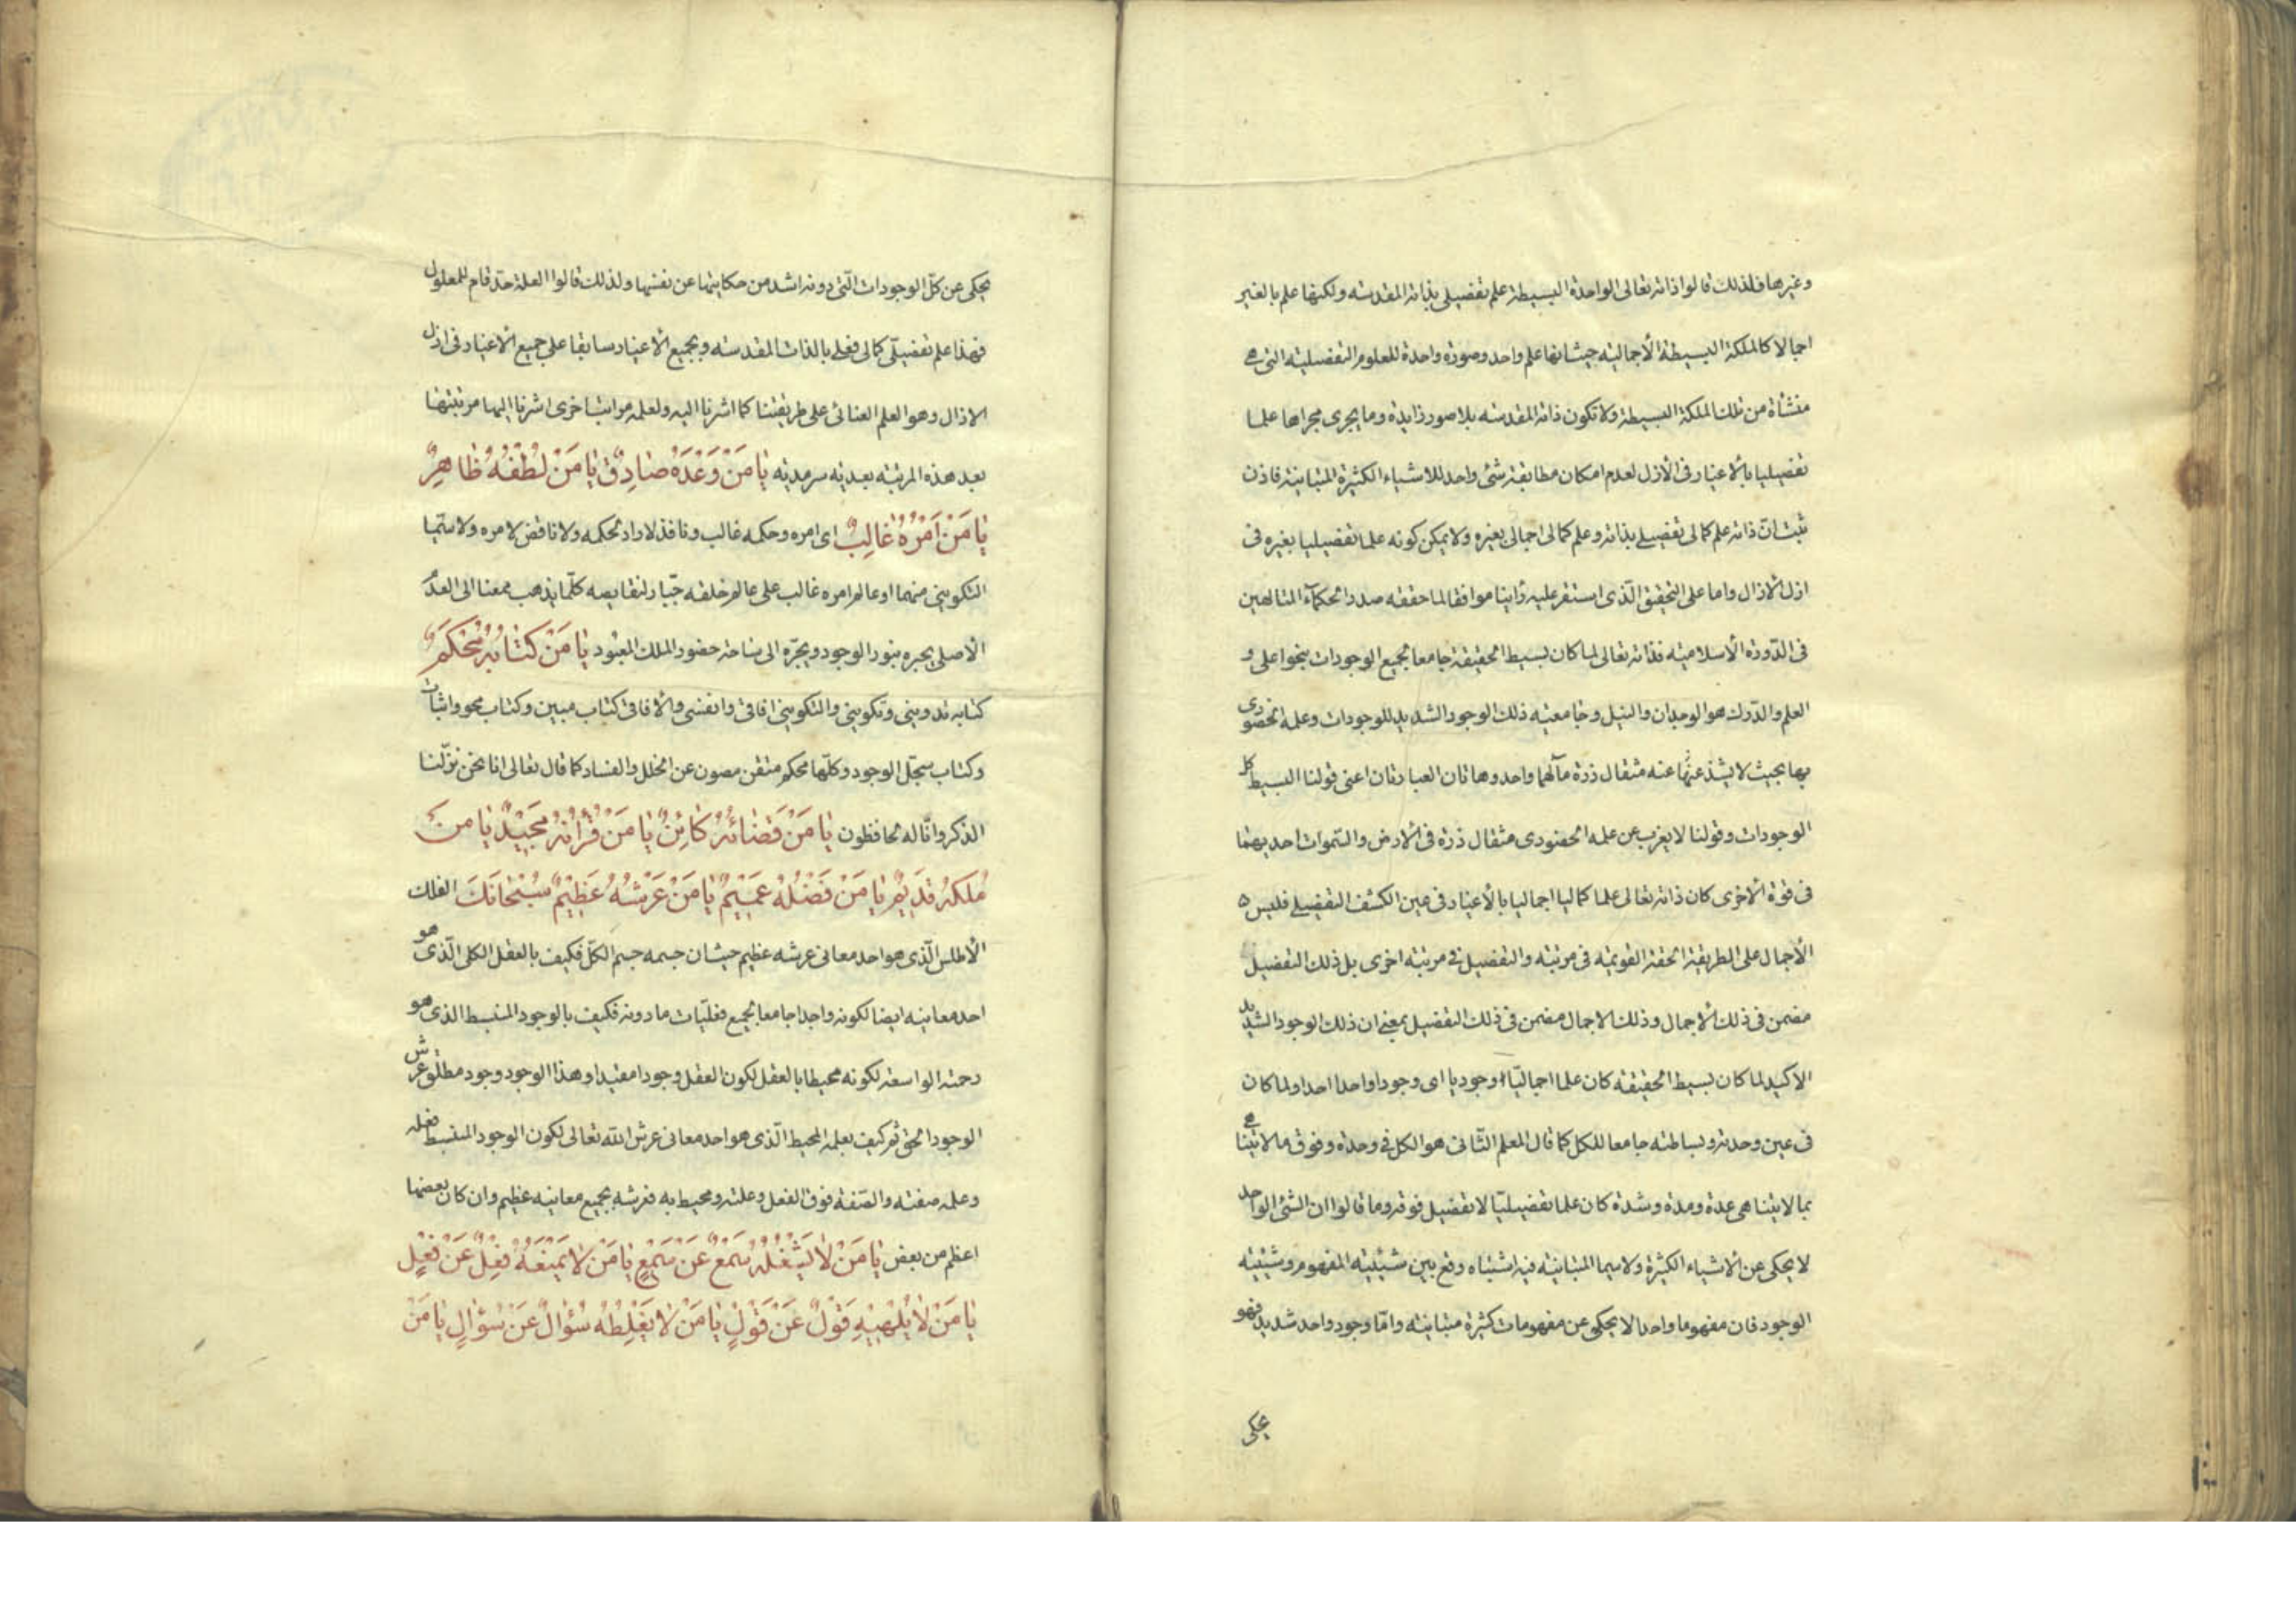 وغيرها فلذلك قالوا ذاته تعالى الواحدة البسيطة علم تفصيلى بذاته المقدسه ولكنها علم بالغير
اجمالا كالملكة البسيطة الأجماليه حيث انها علم واحد وصورة واحدة للعلوم التفصيليه التى هى
منشأة من تلك الملكة البسيطة ولا تكون ذاته المقدسه بلا صور زايدة وما يجرى مجراها علما
تفصيليا بالأغيار فى الأزل لعدم امكان مطابقة شئ واحد للاشياء الكثيرة المتباينة فاذن
ثبت انّ ذاته علم كمالى تفصيلى بذاته وعلم كمالى اجمالى بغيره ولا يمكن كونه علما تفصيليا بغيره فى
ازل الازال واما على التحقيق الّذى استقر عليه رأينا موافقا لما حققه صدر الحكمآء المتالهين
فى الدّورة الأسلاميّه فذاته تعالى لما كان بسيط الحقيقة جامعا لجميع الوجودات بنحو اعلى و
العلم والدّرك هو الوجدان والنيل وجامعيّه ذلك الوجود الشديد للوجودات وعلمه الحضورى
بها بحيث لا يشذ عنه مثقال ذرة مآلهما واحد وهاتان العبارتان اعنى قولنا البسيط كل
الوجودات وقولنا لا يغرب عن علمه الحضورى مثقال ذرة فى الارض والسّموات احديهما
فى قوة الاخرى كان ذاته تعالى علما كماليا اجماليا بالأغيار فى عين الكشف التفصيلى فليس
الأجمال على الطريقة الحقة القويمه فى مرتبه والتفصيل فى مرتبه اخرى بل ذلك التفصيل
مضمن فى ذلك الاجمال وذلك الاجمال مضمن فى ذلك التفصيل بمعنى ان ذلك الوجود الشديد
الاكيد لما كان بسيط الحقيقه كان علما اجماليّا وجوديا اى وجودا واحدا احدا ولما كان
فى عين وحدته وبساطته جامعا للكل كما قال المعلم الثانى هو الكل فى وحدة وفوق ما لا يتناهى
بما لا يتناهى عدة ومدة وشدة كان علما تفصيليّا لا تفصيل فوقه وما قالوا ان الشئ الواحد
لا يحكى عن الاشياء الكثيرة ولا سيما المتباينة فيه اشتباه وقع بين شيئيه المفهوم وشيئيه
الوجود فان مفهوما واحدا لا يحكى عن مفهومات كثيرة متباينه وامّا وجود واحد شديد فهو
يحكى
يحكى عن كلّ الوجودات الّتى دونه اشد من حكايتها عن نفسها ولذلك قالوا العلة حدّ تام للمعلول
فهذا علم تفصيلّى كمالى فعلى بالذات المقدسه وبجميع الأغيار سابقا على جميع الاغيار فى ازل
الازال وهو العلم العنائى على طريقتنا كما اشرنا اليه ولعلمه مراتب اخرى اشرنا اليها مرتبتها
بعد هذه المرتبه بعديه سرمديه يَا مَنْ وَعْدُهُ صَادِقٌ يَا مَنْ لُطْفُهُ ظَاهِرٌ
يَا مَنْ اَمْرُهُ غَالِبٌ اى امره وحكمه غالب ونافذ لا راد لحكمه ولا ناقض لامره ولا سيّما
التكوينى منهما او عالم امره غالب على عالم خلقه جبّار لنقايصه كلّما يذهب معنا الى العدم
الاصلى يجبره بنور الوجود ويجرّه الى ساحة حضور الملك المعبود يَا مَنْ كِتَابُهُ مُحْكَمٌ
كتابه تدوينى وتكوينى والتكوينى افاقى وانفسى والافاقى كتاب مبين وكتاب محو واثبات
وكتاب سجلّ الوجود وكلّها محكم متقن مصون عن الخلل والفساد كما قال تعالى انا نحن نزّلنا
الذكر وانّا له لحافظون يَا مَنْ قَضَائُهُ كَائِنٌ يَا مَنْ قُرْانُهُ مَجِيْدٌ يَا مَنْ
مُلْكُهُ قَدِيْمٌ يَا مَنْ فَضْلُهُ عَمِيْمٌ يَا مَنْ عَرْشُهُ عَظِيْمٌ سُبْحَانَكَ الفلك
الأطلس الّذى هو احد معانى عرشه عظيم حيث ان جسمه جسم الكلّ فكيف بالعقل الكلى الّذى هو
احد معانيه ايضا لكونه واجدا جامعا لجميع فعليّات ما دونه فكيف بالوجود المنبسط الذى هو
رحمته الواسعة لكونه محيطا بالعقل لكون العقل وجودا مقيدا وهذا الوجود وجود مطلق عرش
الوجود الحق ثم كيف بعلمه المحيط الّذى هو احد معانى عرش الله تعالى لكون الوجود المنبسط فعله
وعلمه صفته والصّفة فوق الفعل وعلته ومحيط به فعرشه بجميع معانيه عظيم وان كان بعضها
اعظم من بعض يَا مَنْ لَا يَشْغَلُهُ سَمْعٌ عَنْ سَمْعٍ يَا مَنْ لَا يَمْنَعُهُ فِعْلٌ عَنْ فِعْلٍ
يَا مَنْ لَا يُلْهِيْهِ قَوْلٌ عَنْ قَوْلٍ يَا مَنْ لَا يُغَلِّطُهُ سُؤَالٌ عَنْ سُؤَالٍ يَا مَنْ